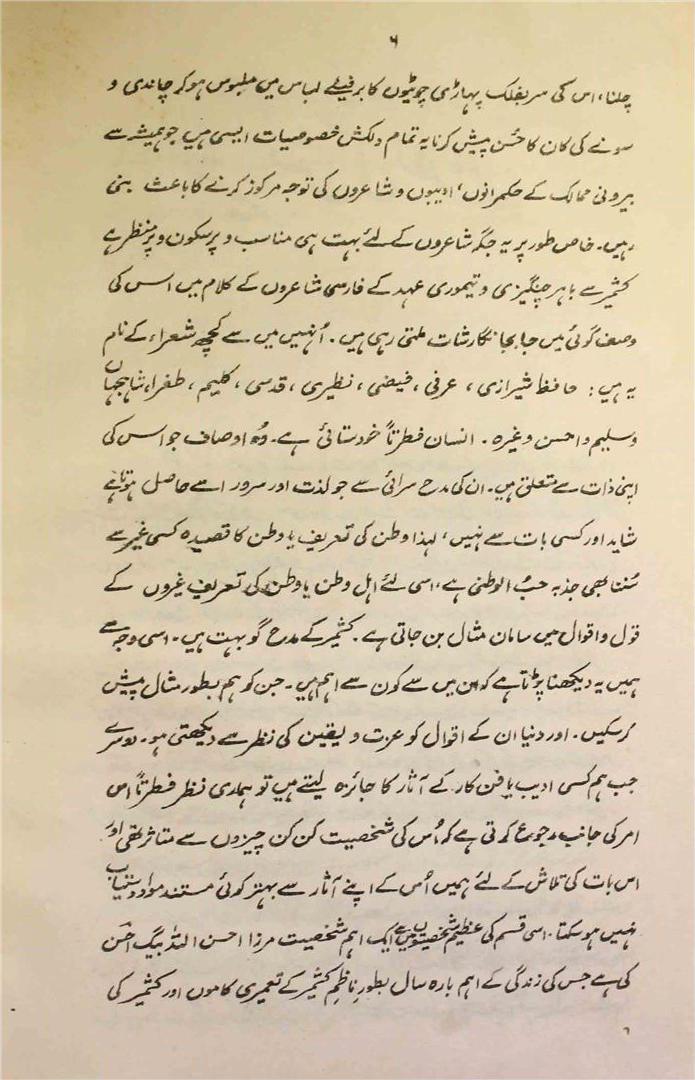 ۶
چلنا، اس کی سر بفلک پہاڑی چوٹیوں کا برفیلے لباس میں ملبوس ہو کر چاندی و
سونے کی کان کا حُسن پیش کرنا یہ تمام دلکش خصوصیات ایسی ہیں جو ہمیشہ سے
بیرونی ممالک کے حکمرانوں، ادیبوں و شاعروں کی توجہ مرکوز کرنے کا باعث بنی
رہیں۔ خاص طور پر یہ جگہ شاعروں کے لئے بہت ہی مناسب و پرسکون و پر منظر ہے
کشمیر سے باہر چنگیزی و تیموری عہد کے فارسی شاعروں کے کلام میں اس کی
وصف گوئی میں جا بجا نگارشات ملتی رہی ہیں۔ اُنہیں میں سے کچھ شعراء کے نام
یہ ہیں: حافظ شیرازی، عرفی، فیضی، نظیری، قدسی، کلیم، طغراء شاہجہاں
وسلیم و احسن وغیرہ۔ انسان فطرتاً خودستائی ہے۔ وُہ اوصاف جو اس کی
اپنی ذات سے متعلق ہیں۔ ان کی مدح سرائی سے جو لذت اور سرور اسے حاصل ہوتا ہے
شاید اور کسی بات سے نہیں، لہذا وطن کی تعریف یا وطن کا قصیدہ کسی غیر سے
سُننا بھی جذبہ حبُ الوطنی ہے، اسی لئے اہل وطن یا وطن کی تعریف غیروں کے
قول و اقوال میں سامان مثال بن جاتی ہے۔ کشمیر کے مدح گو بہت ہیں۔ اسی وجہ سے
ہمیں یہ دیکھنا پڑتا ہے کہ ان میں سے کون سے اہم ہیں۔ جن کو ہم بطور مثال پیش
کر سکیں۔ اور دنیا ان کے اقوال کو عزت و یقین کی نظر سے دیکھتی ہو۔ دوسرے
جب ہم کسی ادیب یا فن کار کے آثار کا جائزہ لیتے ہیں تو ہماری نظر فطرتاً اس
امر کی جانب رجوع کرتی ہے کہ اُس کی شخصیت کن کن چیزوں سے متاثر تھی اور
اس بات کی تلاش کے لئے ہمیں اُس کے اپنے آثار سے بہتر کوئی مستند مواد دستیاب
نہیں ہو سکتا۔ اسی قسم کی عظیم شخصیتوں میں سے ایک اہم شخصیت مرزا احسن اللہ بیگ احسن
کی ہے جس کی زندگی کے اہم بارہ سال بطور ناظمِ کشمیر کے تعمیری کاموں اور کشمیر کی